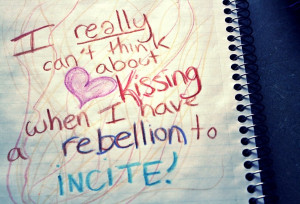 I really
can't think
about
kissing
when I have
a rebellion to
INCITE!